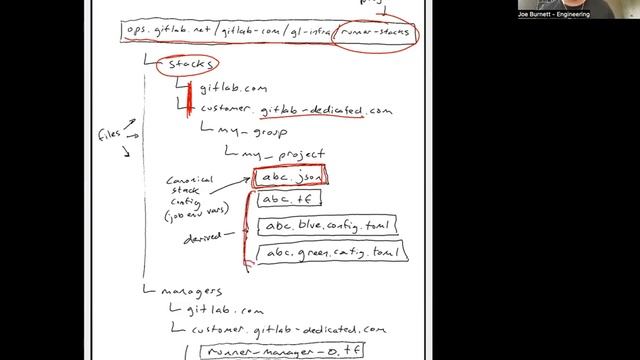 Joe Burnett - Engineering
ops.gitlab.net/gitlab-com/gl-infra/runner-stacks
stacks
gitlab.com
customer.gitlab-dedicated.com
files
my_group
my_project
canonical stack config (job env vars)
abc.json
abc.tf
derived
abc.blue.config.toml
abc.green.config.toml
managers
gitlab.com
customer.gitlab-dedicated.com
runner-manager-0.tf